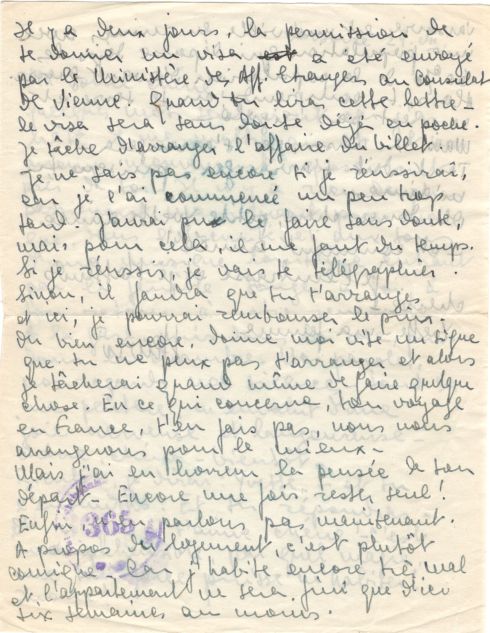 Il y a deux jours, la permission de
te donner un visa est a été envoyé
par le Ministère des Aff. Etrangers au Consulat
de Vienne. Quand tu liras cette lettre -
le visa sera sans doute déjà en poche.
Je tâche d'arranger l'affaire du billet.
Je ne sais pas encore si je réussirai,
car je l'ai commencé un peu trop
tard. J'aurai pu le faire sans doute,
mais pour cela il me faut du temps.
Si je réussis, je vais te télégraphier.
Sinon, il faudra que tu t'arranges
et ici, je pourrai rembourser le prix.
Ou bien encore, donne moi vite un signe
que tu ne peux pas t'arranger et alors
je tâcherai quand même de faire quelque
chose. En ce qui concerne, ton voyage
en France, t'en fais pas, nous nous
arrangerons pour le mieux -
Mais j'ai en horreur la pensée de ton
départ - Encore une fois rester seul!
Enfin n'en parlons pas maintenant.
A propos du logement, c'est plutôt
comique car j'habite encore très mal
et l'appartement ne sera fini que d'ici
six semaines au moins.
365